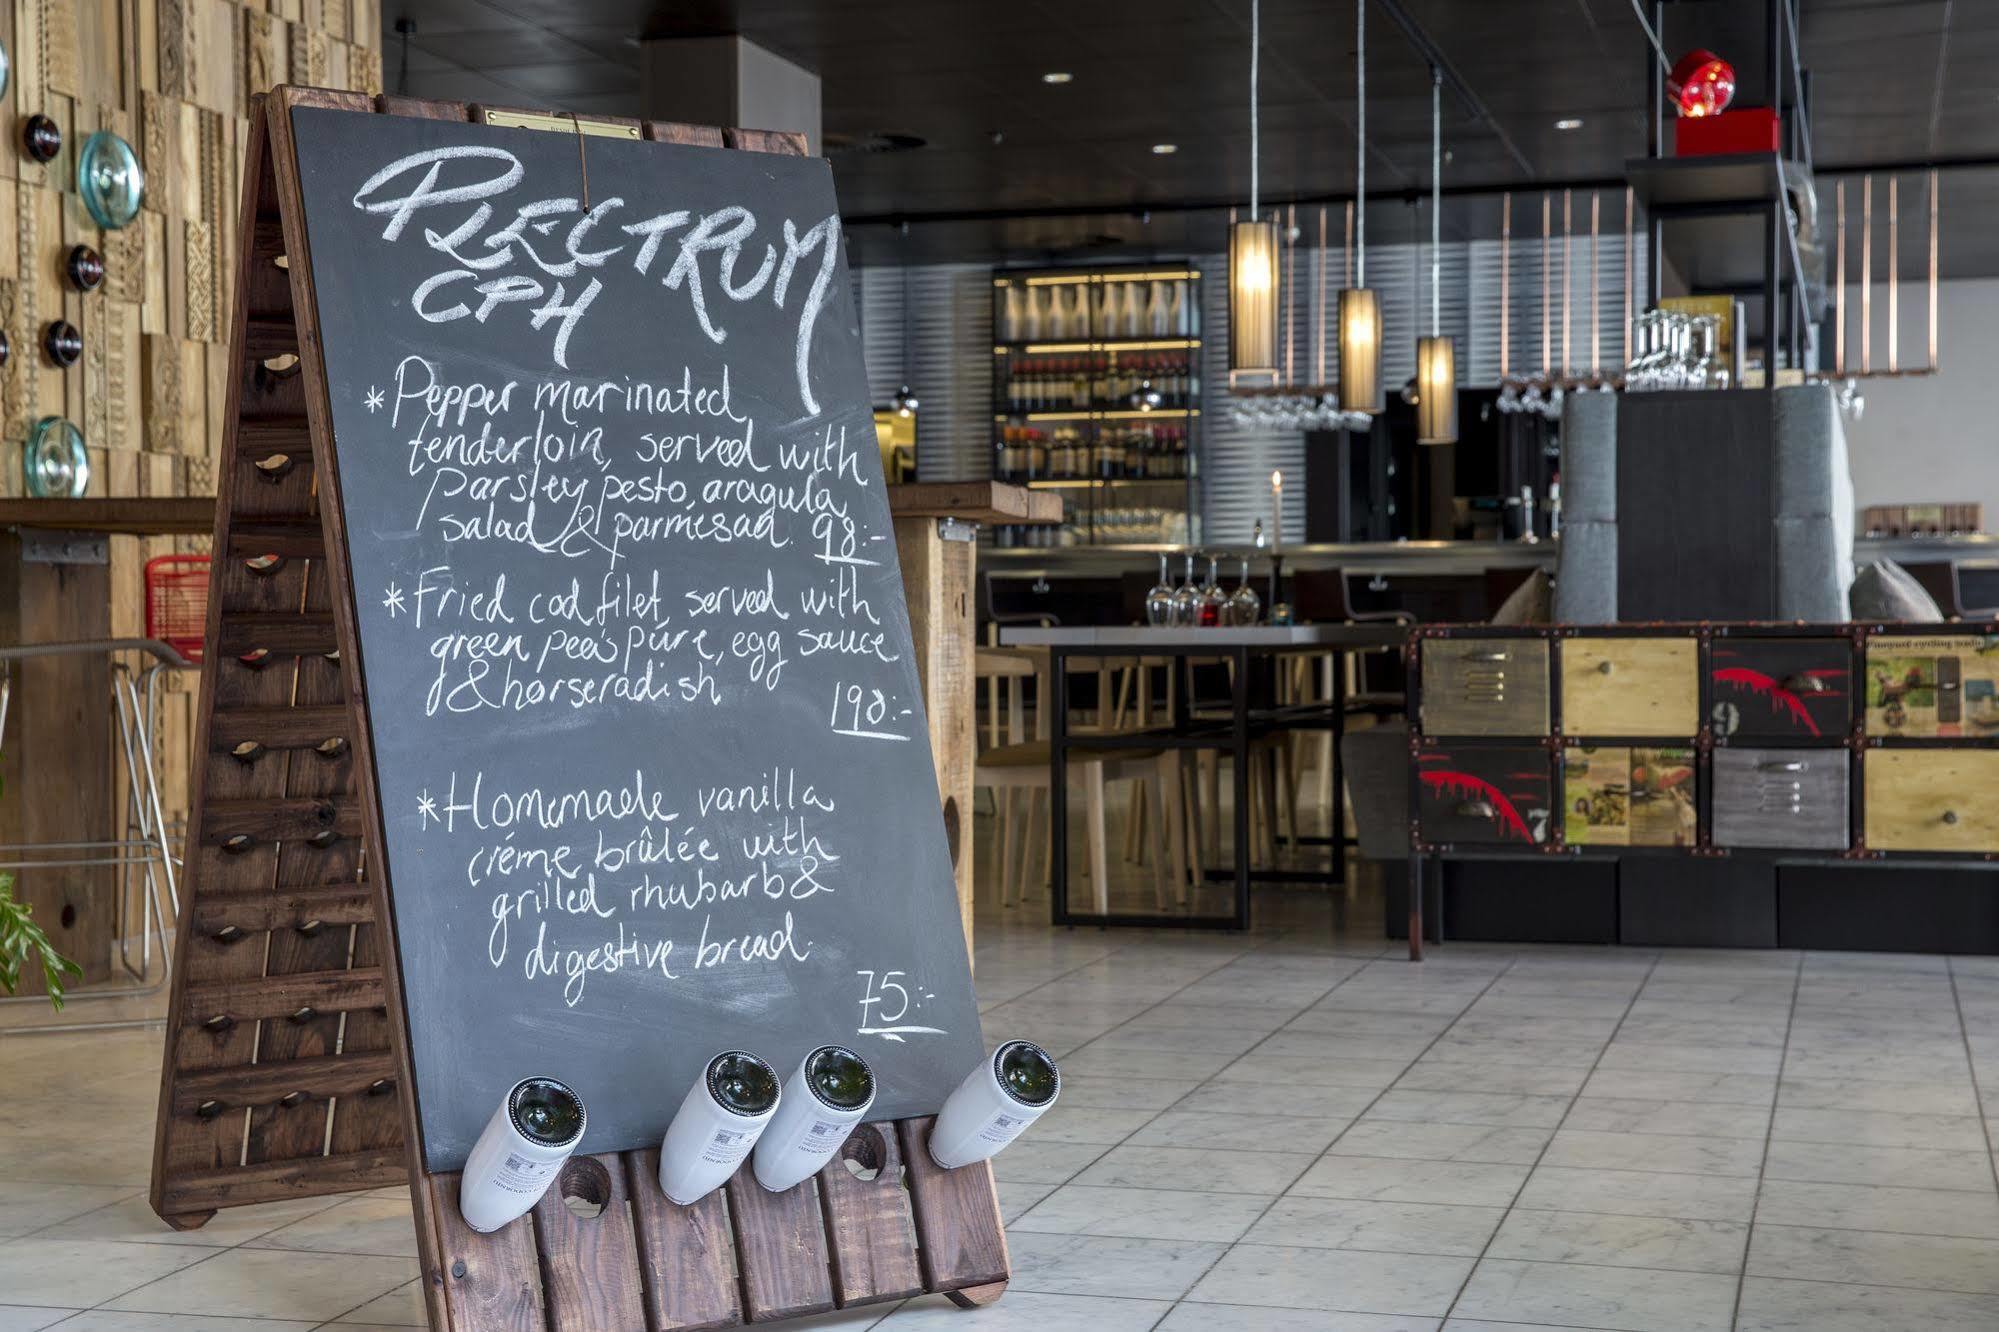 PLECTRUM
CPH
* Pepper marinated
tenderloin, served with
Parsley pesto, aragula
salad & parmesan. 98:-
* Fried cod filet, served with
green pea's púre, egg sauce
& horseradish
198:-
* Homemade vanilla
créme brûlée with
grilled rhubarb &
digestive bread.
75:-
Vineyard cycling trails
9
7